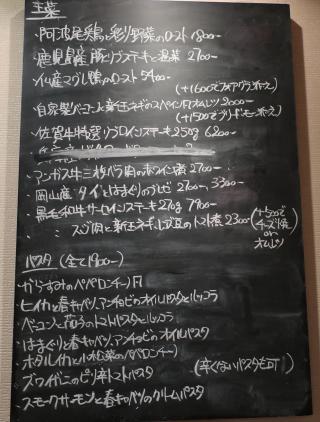 主菜
・阿波尾鶏と彩り野菜のロースト 1800-
・鹿児島産 豚リブステーキと温菜 2700-
・仏産マグレ鴨のロースト 5400-
(+1600でフォアグラ添え)
・自家製ベーコンと新玉ネギのスペイン風オムレツ 2000-
(+1500でブリドモー添え)
・佐賀牛特選リブロインステーキ250g 6800-
・アンガス牛三枚バラ肉の赤ワイン煮 2700-
・岡山産 タイとはまぐりのブレゼ 2700-, 3300-
・黒毛和牛サーロインステーキ270g 7900-
・〃 スジ肉と新玉ネギ、山豆のトマト煮 2300-
(+500でチーズ焼 or オムレツ)
パスタ (全て1900-)
・からすみのペペロンチーノ
・ヒイカと春キャベツ、アンチョビのオイルパスタとルッコラ
・ベーコンと茄子のトマトパスタとルッコラ
・はまぐりと春キャベツ、アンチョビのオイルパスタ
・ホタルイカと小松菜のペペロンチーノ
・ズワイガニのピリ辛トマトパスタ
(辛くないパスタも可!)
・スモークサーモンと春キャベツのクリームパスタ